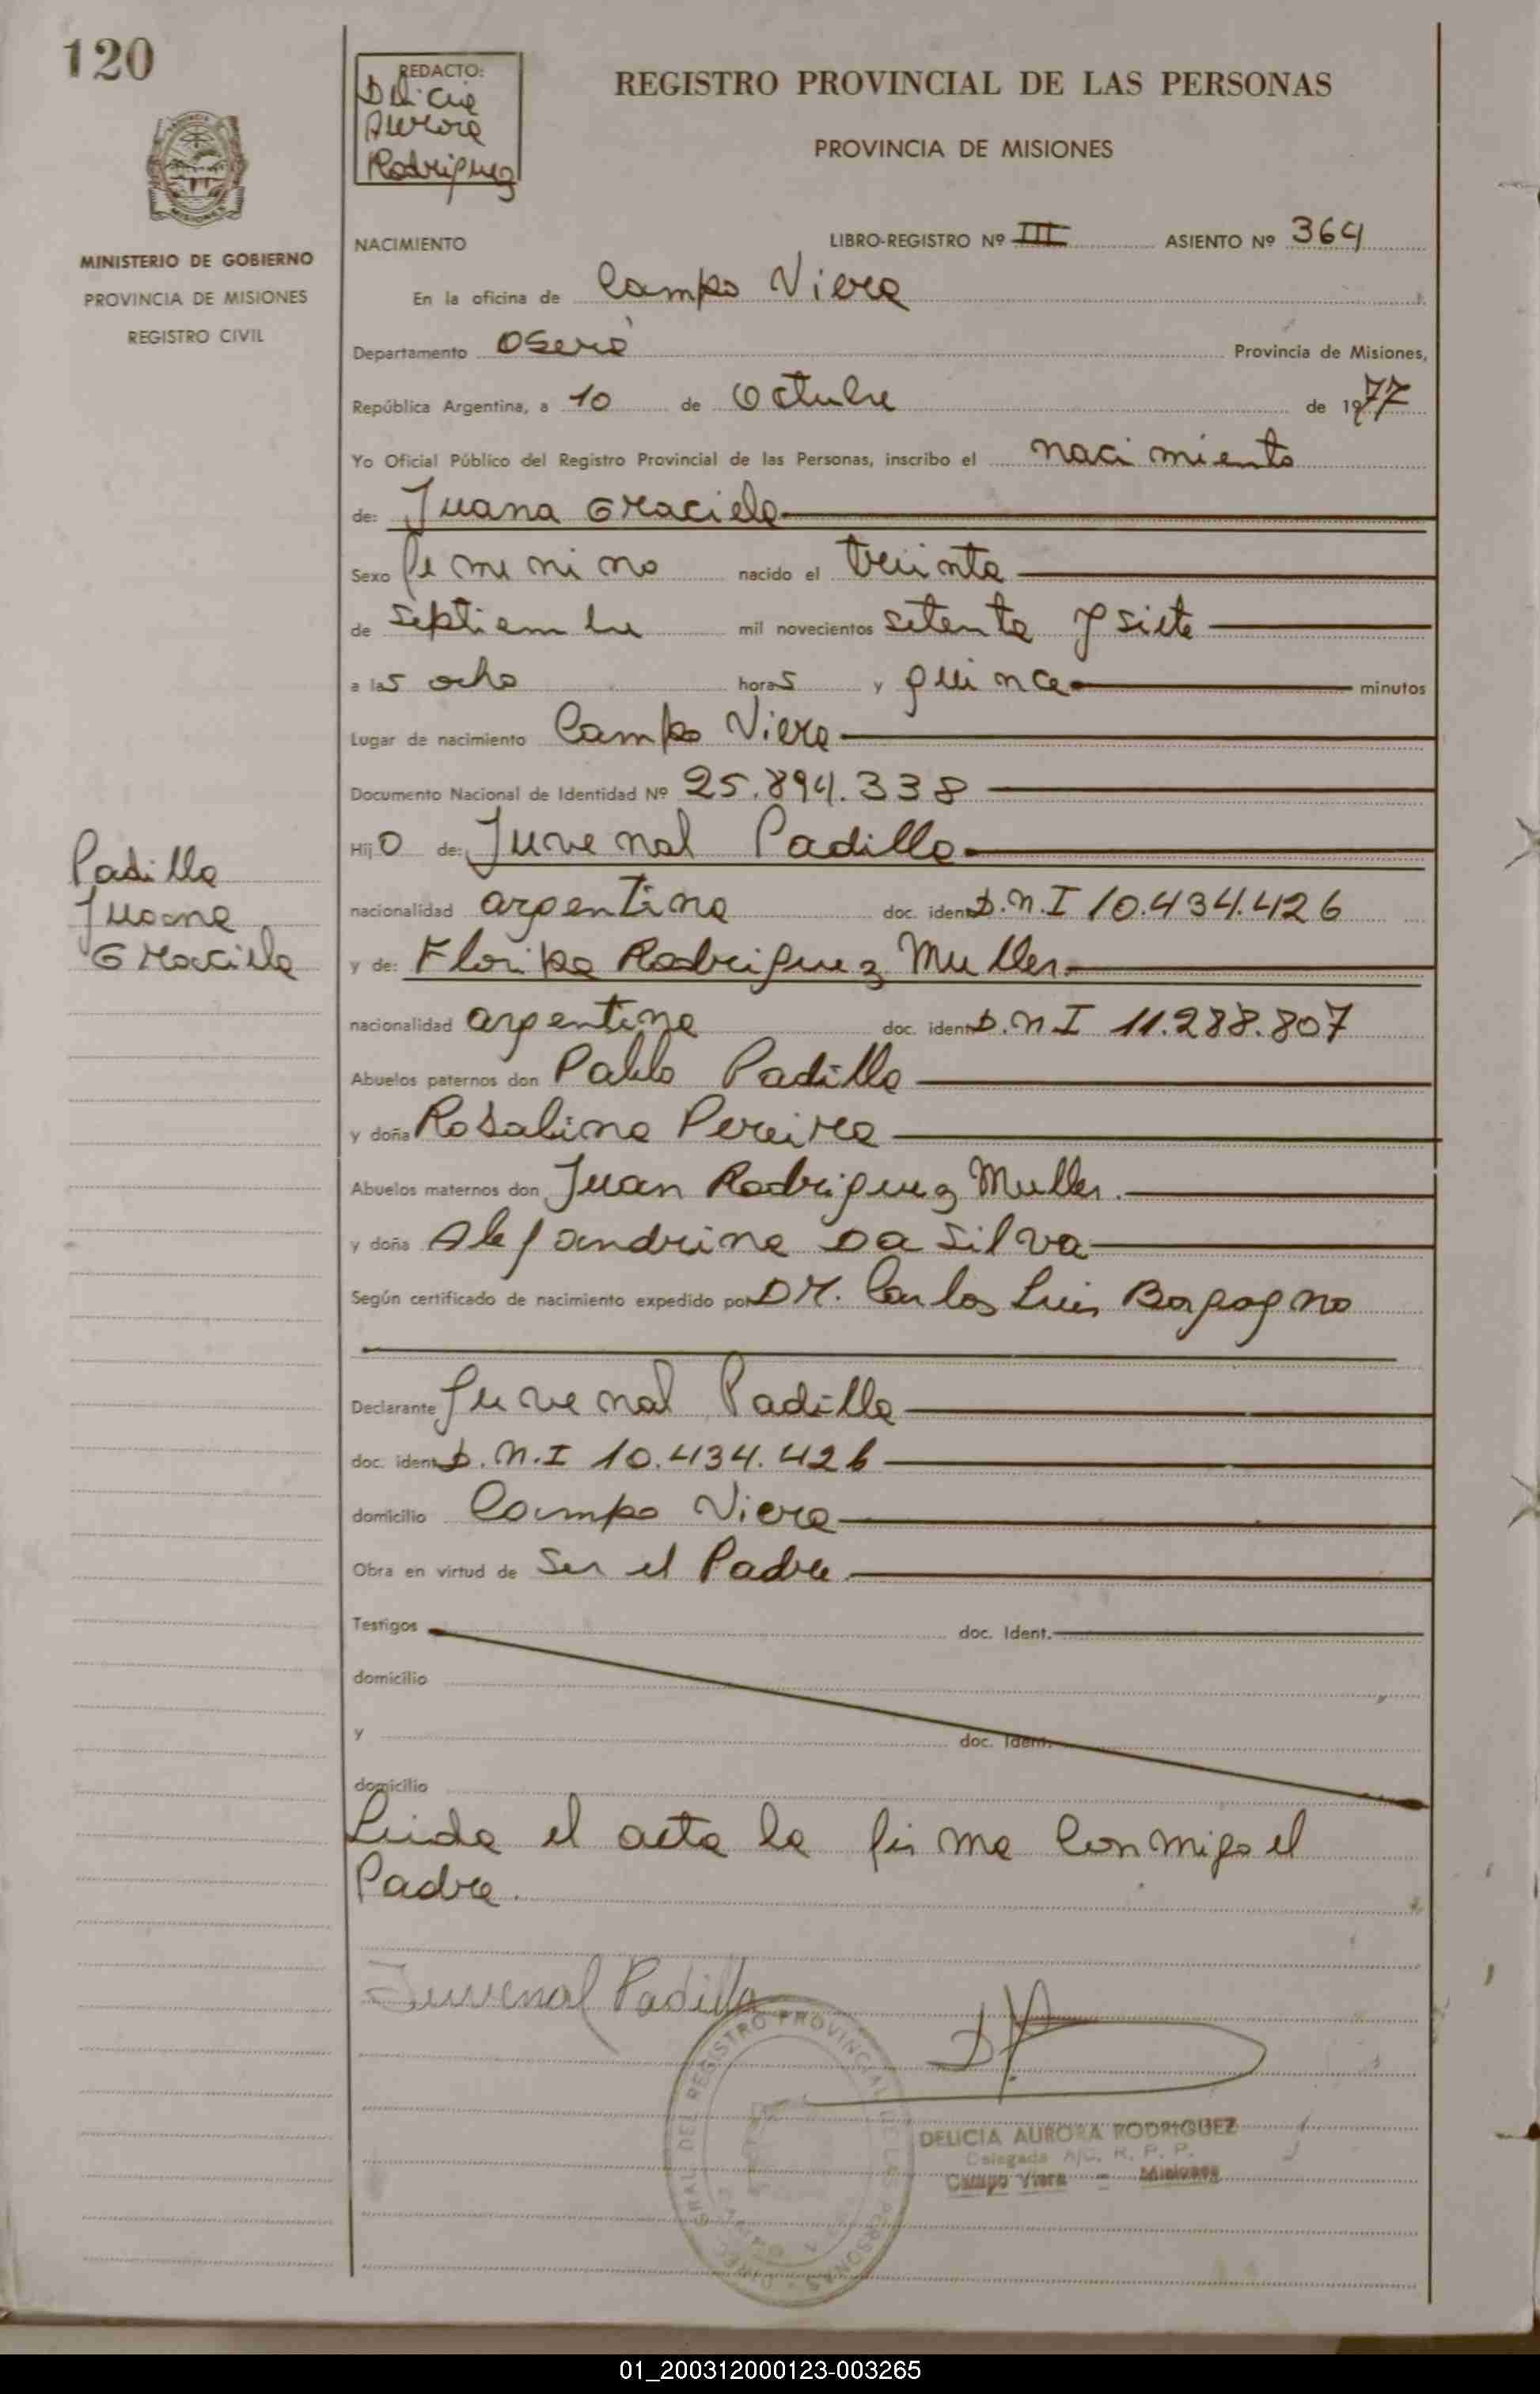 120
REDACTO:
Delicia
Aurora
Rodriguez
REGISTRO PROVINCIAL DE LAS PERSONAS
PROVINCIA DE MISIONES
MISIONES
MINISTERIO DE GOBIERNO
PROVINCIA DE MISIONES
REGISTRO CIVIL
NACIMIENTO LIBRO-REGISTRO Nº III ASIENTO Nº 364
En la oficina de Campo Viera
Departamento Oberá Provincia de Misiones,
República Argentina, a 10 de Octubre de 1977
Yo Oficial Público del Registro Provincial de las Personas, inscribo el nacimiento
de: Juana Graciela
Sexo femenino nacido el treinta
de septiembre mil novecientos setenta y siete
a las ocho horas y quince minutos
Lugar de nacimiento Campo Viera
Documento Nacional de Identidad Nº 25.894.338
Hijo de: Juvenal Padilla
Padilla
Juana
Graciela
nacionalidad argentina doc. ident. D.N.I 10.434.426
y de: Floripa Rodriguez Muller
nacionalidad argentina doc. ident. D.N.I 11.288.807
Abuelos paternos don Pablo Padilla
y doña Rosalina Pereira
Abuelos maternos don Juan Rodriguez Muller.
y doña Alejandrina Da Silva
Según certificado de nacimiento expedido por DR. Carlos Luis Borgogno
Declarante Juvenal Padilla
doc. ident. D.N.I 10.434.426
domicilio Campo Viera
Obra en virtud de Ser el Padre
Testigos doc. Ident.
domicilio
y doc. Ident.
domicilio
Leida el acta la firma Conmigo el
Padre.
Juvenal Padilla
REGISTRO PROVINCIAL DE LAS PERSONAS
DELICIA AURORA RODRIGUEZ
Delegada A/C. R. P. P.
Campo Viera - Misiones
01_200312000123-003265